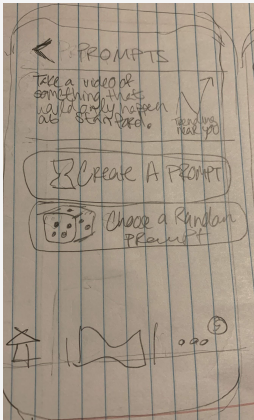 PROMPTS
Take a video of
something that
would only happen
at Stanford.
Trending
near you
Create A PROMPT
Choose a Random
PROMPT
5